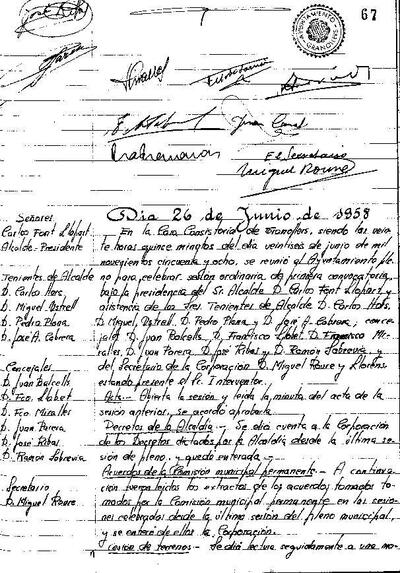 67
AYUNTAMIENTO
GRANOLLERS
El Secretario
Miguel Roure
Día 26 de Junio de 1958
Señores
Carlos Font Llopart
Alcalde-Presidente
Tenientes de Alcalde
D. Carlos Hors
D. Miguel Astrell
D. Pedro Plana
D. José A. Cabrera
Concejales
D. Juan Balcells
D. Fco Llobet
D. Fco Miralles
D. Juan Parera
D. José Ribas
D. Ramón
Secretario
D. Miguel Roure
En la Casa Consistorial de Granollers, siendo las vein
te horas quince minutos del día veintiseis de junio de mil
novecientos cincuenta y ocho, se reunió el Ayuntamiento ple
no para celebrar sesión ordinaria de primera convocatoria,
bajo la presidencia del Sr. Alcalde D. Carlos Font Llopart y
asistencia de los Sres. Tenientes de Alcalde D. Carlos Hors,
D. Miguel Astrell, D. Pedro Plana y D. José A. Cabrera, conce
jales D. Juan Balcells, D. Francisco Llobet, D. Francisco Mi-
ralles, D. Juan Parera, D. José Ribas y D. Ramón y
del Secretario de la Corporación D. Miguel Roure y Llorens
estando presente el Sr. Interventor.
Acta.- Abierta la sesión y leída la minuta del acta de la
sesión anterior, se acordó aprobarla.
Decretos de la Alcaldía.- Se dió cuenta a la Corporación
de los Decretos dictados por la Alcaldía desde la última se-
sión de pleno, y quedó enterada.-
Acuerdos de la Comisión municipal permanente.- A continua-
ción fueron leídos los extractos de los acuerdos tomados to-
mados por la Comisión municipal permanente en las sesio-
nes celebradas desde la última sesión del pleno municipal,
y se enteró de ellos la Corporación.
Cesión de terrenos.- Se dió lectura seguidamente a una mo-